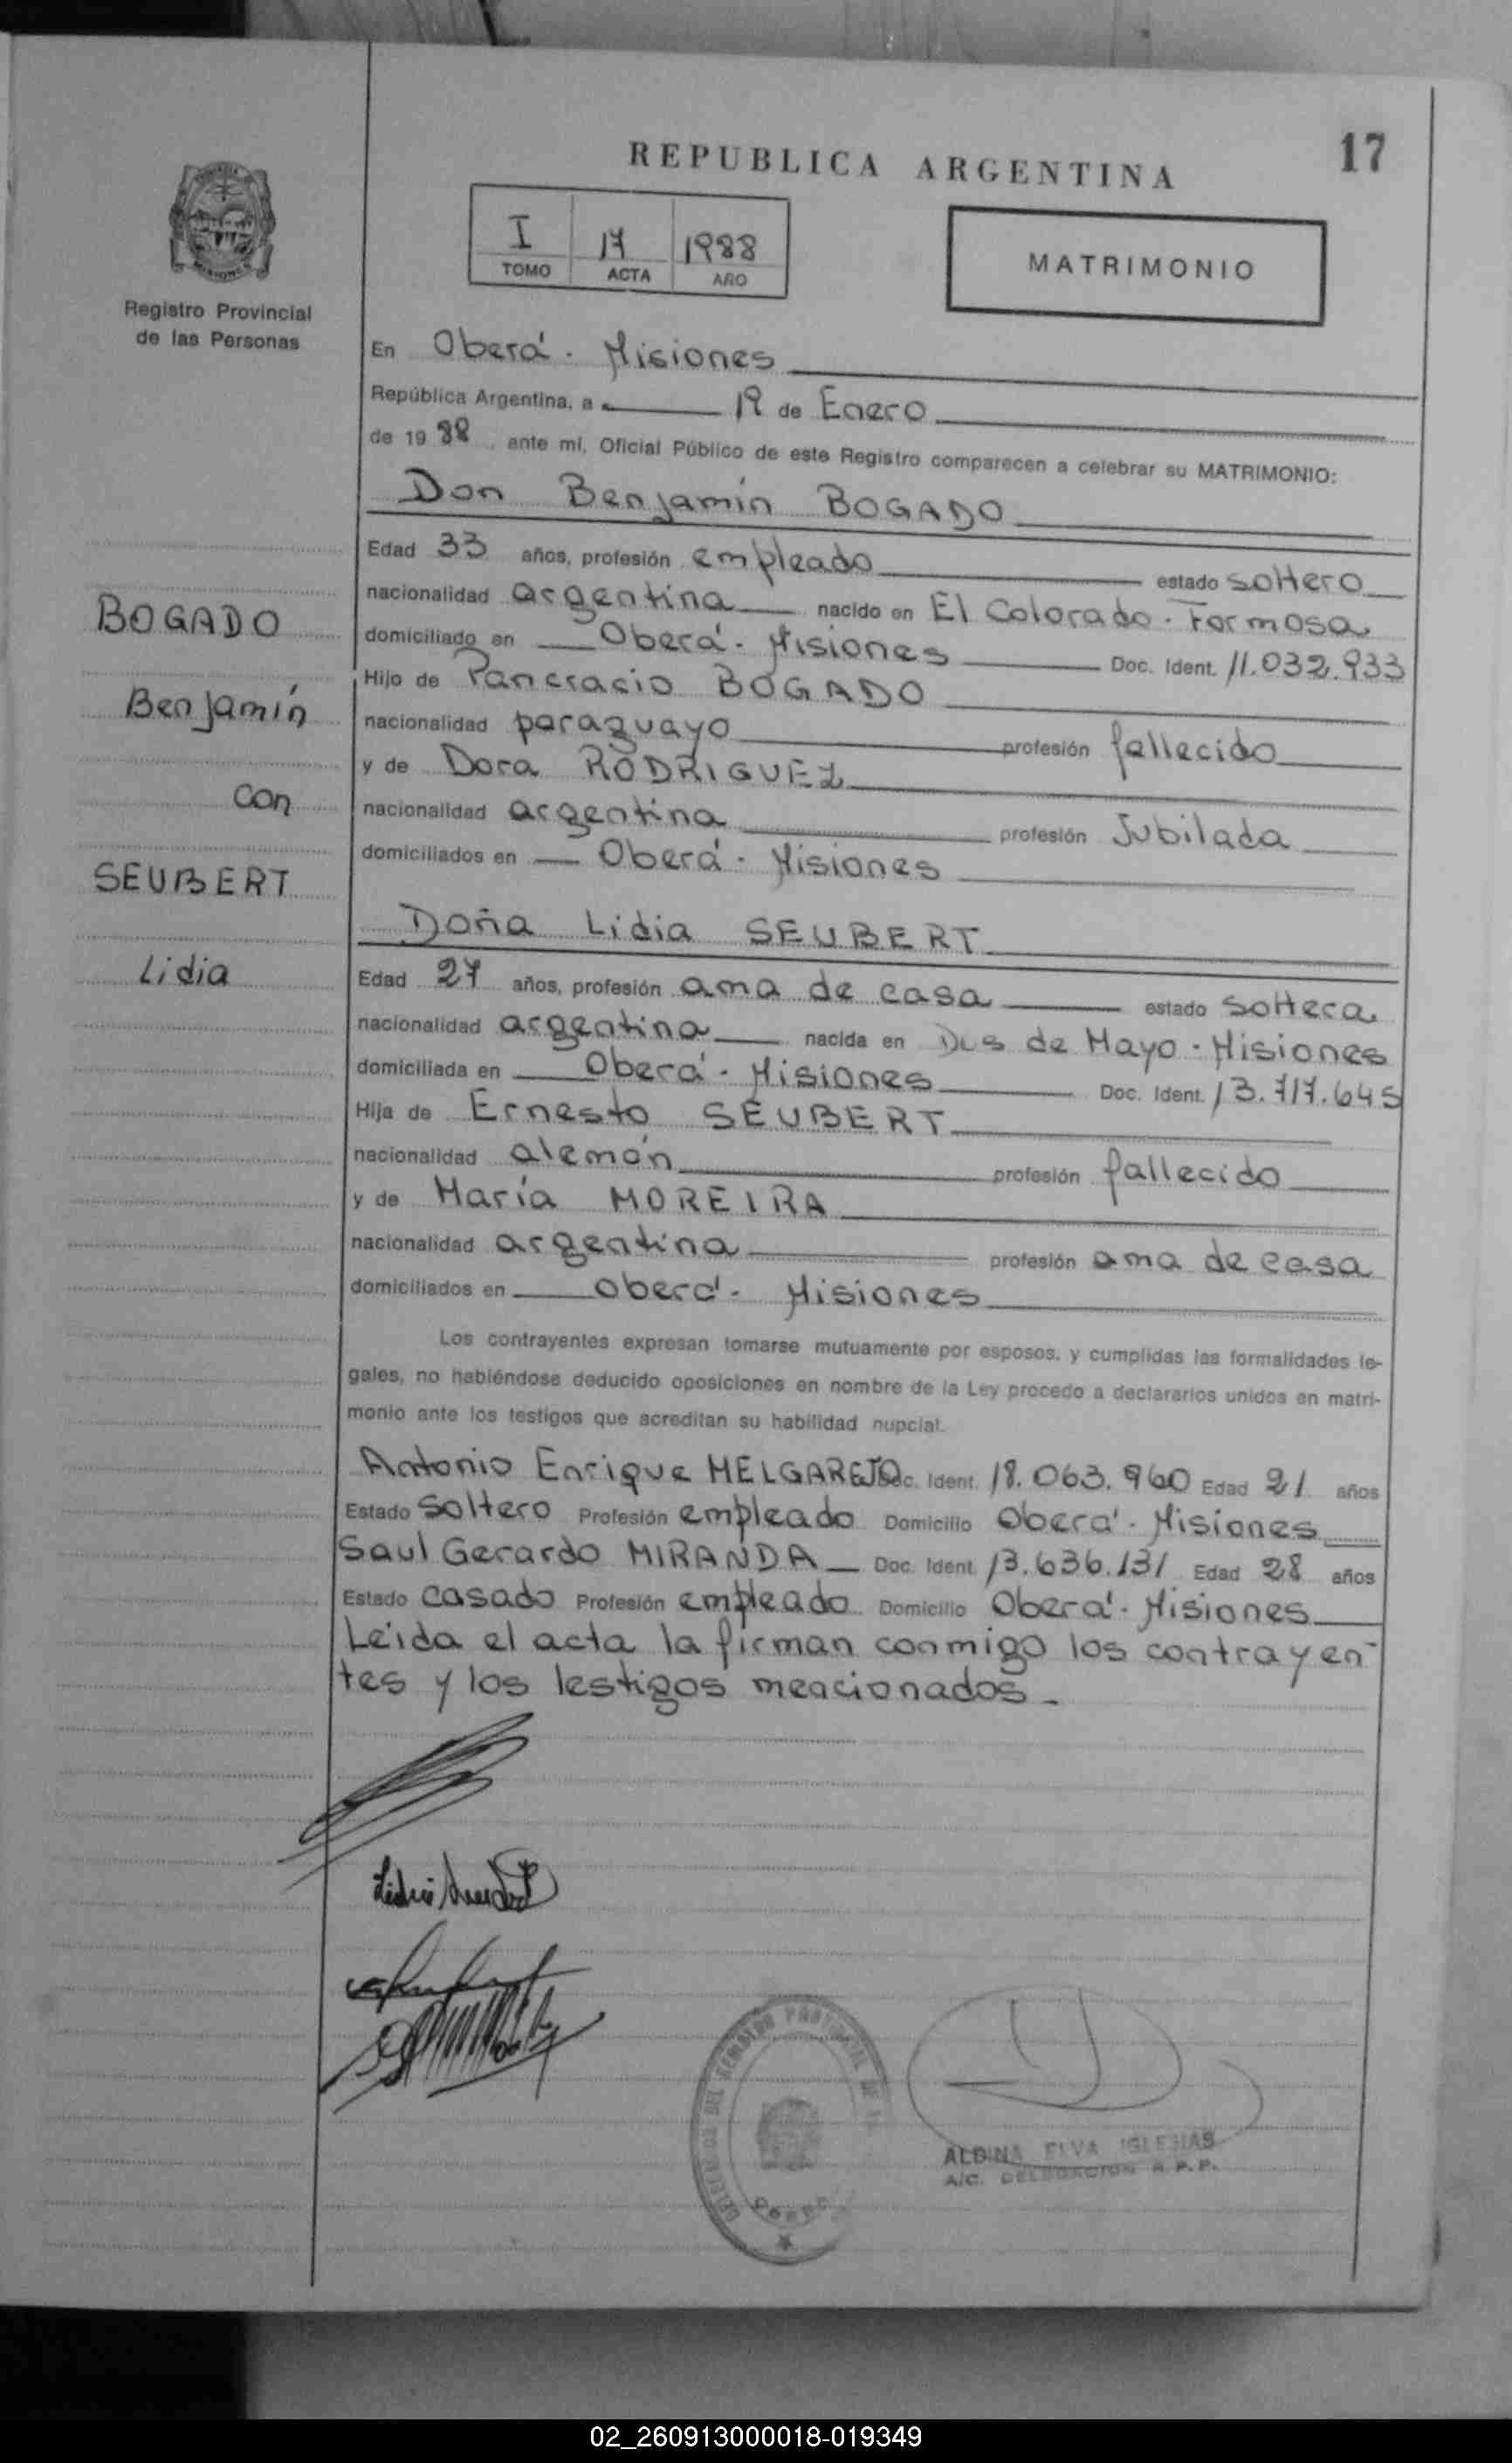 17
REPUBLICA ARGENTINA
I 17 1988
TOMO ACTA AÑO
MATRIMONIO
Registro Provincial
de las Personas
En Oberá - Misiones
República Argentina, a 19 de Enero
de 19 88, ante mí, Oficial Público de este Registro comparecen a celebrar su MATRIMONIO:
Don Benjamín BOGADO
Edad 33 años, profesión empleado estado soltero
nacionalidad argentina nacido en El Colorado - Formosa
domiciliado en Oberá - Misiones Doc. Ident. 11.032.933
Hijo de Pancracio BOGADO
nacionalidad paraguayo profesión fallecido
y de Dora RODRIGUEZ
nacionalidad argentina profesión Jubilada
domiciliados en Oberá - Misiones
BOGADO
Benjamín
con
SEUBERT
Lidia
Doña Lidia SEUBERT
Edad 27 años, profesión ama de casa estado soltera
nacionalidad argentina nacida en Dos de Mayo - Misiones
domiciliada en Oberá - Misiones Doc. Ident. 13.717.645
Hija de Ernesto SEUBERT
nacionalidad alemán profesión fallecido
y de María MOREIRA
nacionalidad argentina profesión ama de casa
domiciliados en Oberá - Misiones
Los contrayentes expresan tomarse mutuamente por esposos, y cumplidas las formalidades le-
gales, no habiéndose deducido oposiciones en nombre de la Ley procedo a declararlos unidos en matri-
monio ante los testigos que acreditan su habilidad nupcial.
Antonio Enrique MELGAREJO Doc. Ident. 18.063.960 Edad 21 años
Estado soltero Profesión empleado Domicilio Oberá - Misiones
Saul Gerardo MIRANDA Doc. Ident. 13.636.131 Edad 28 años
Estado casado Profesión empleado Domicilio Oberá - Misiones
Leída el acta la firman conmigo los contrayen-
tes y los testigos mencionados.
ALDINA ELVA IGLESIAS
A/C. DELEGACION R.P.P.
02_260913000018-019349